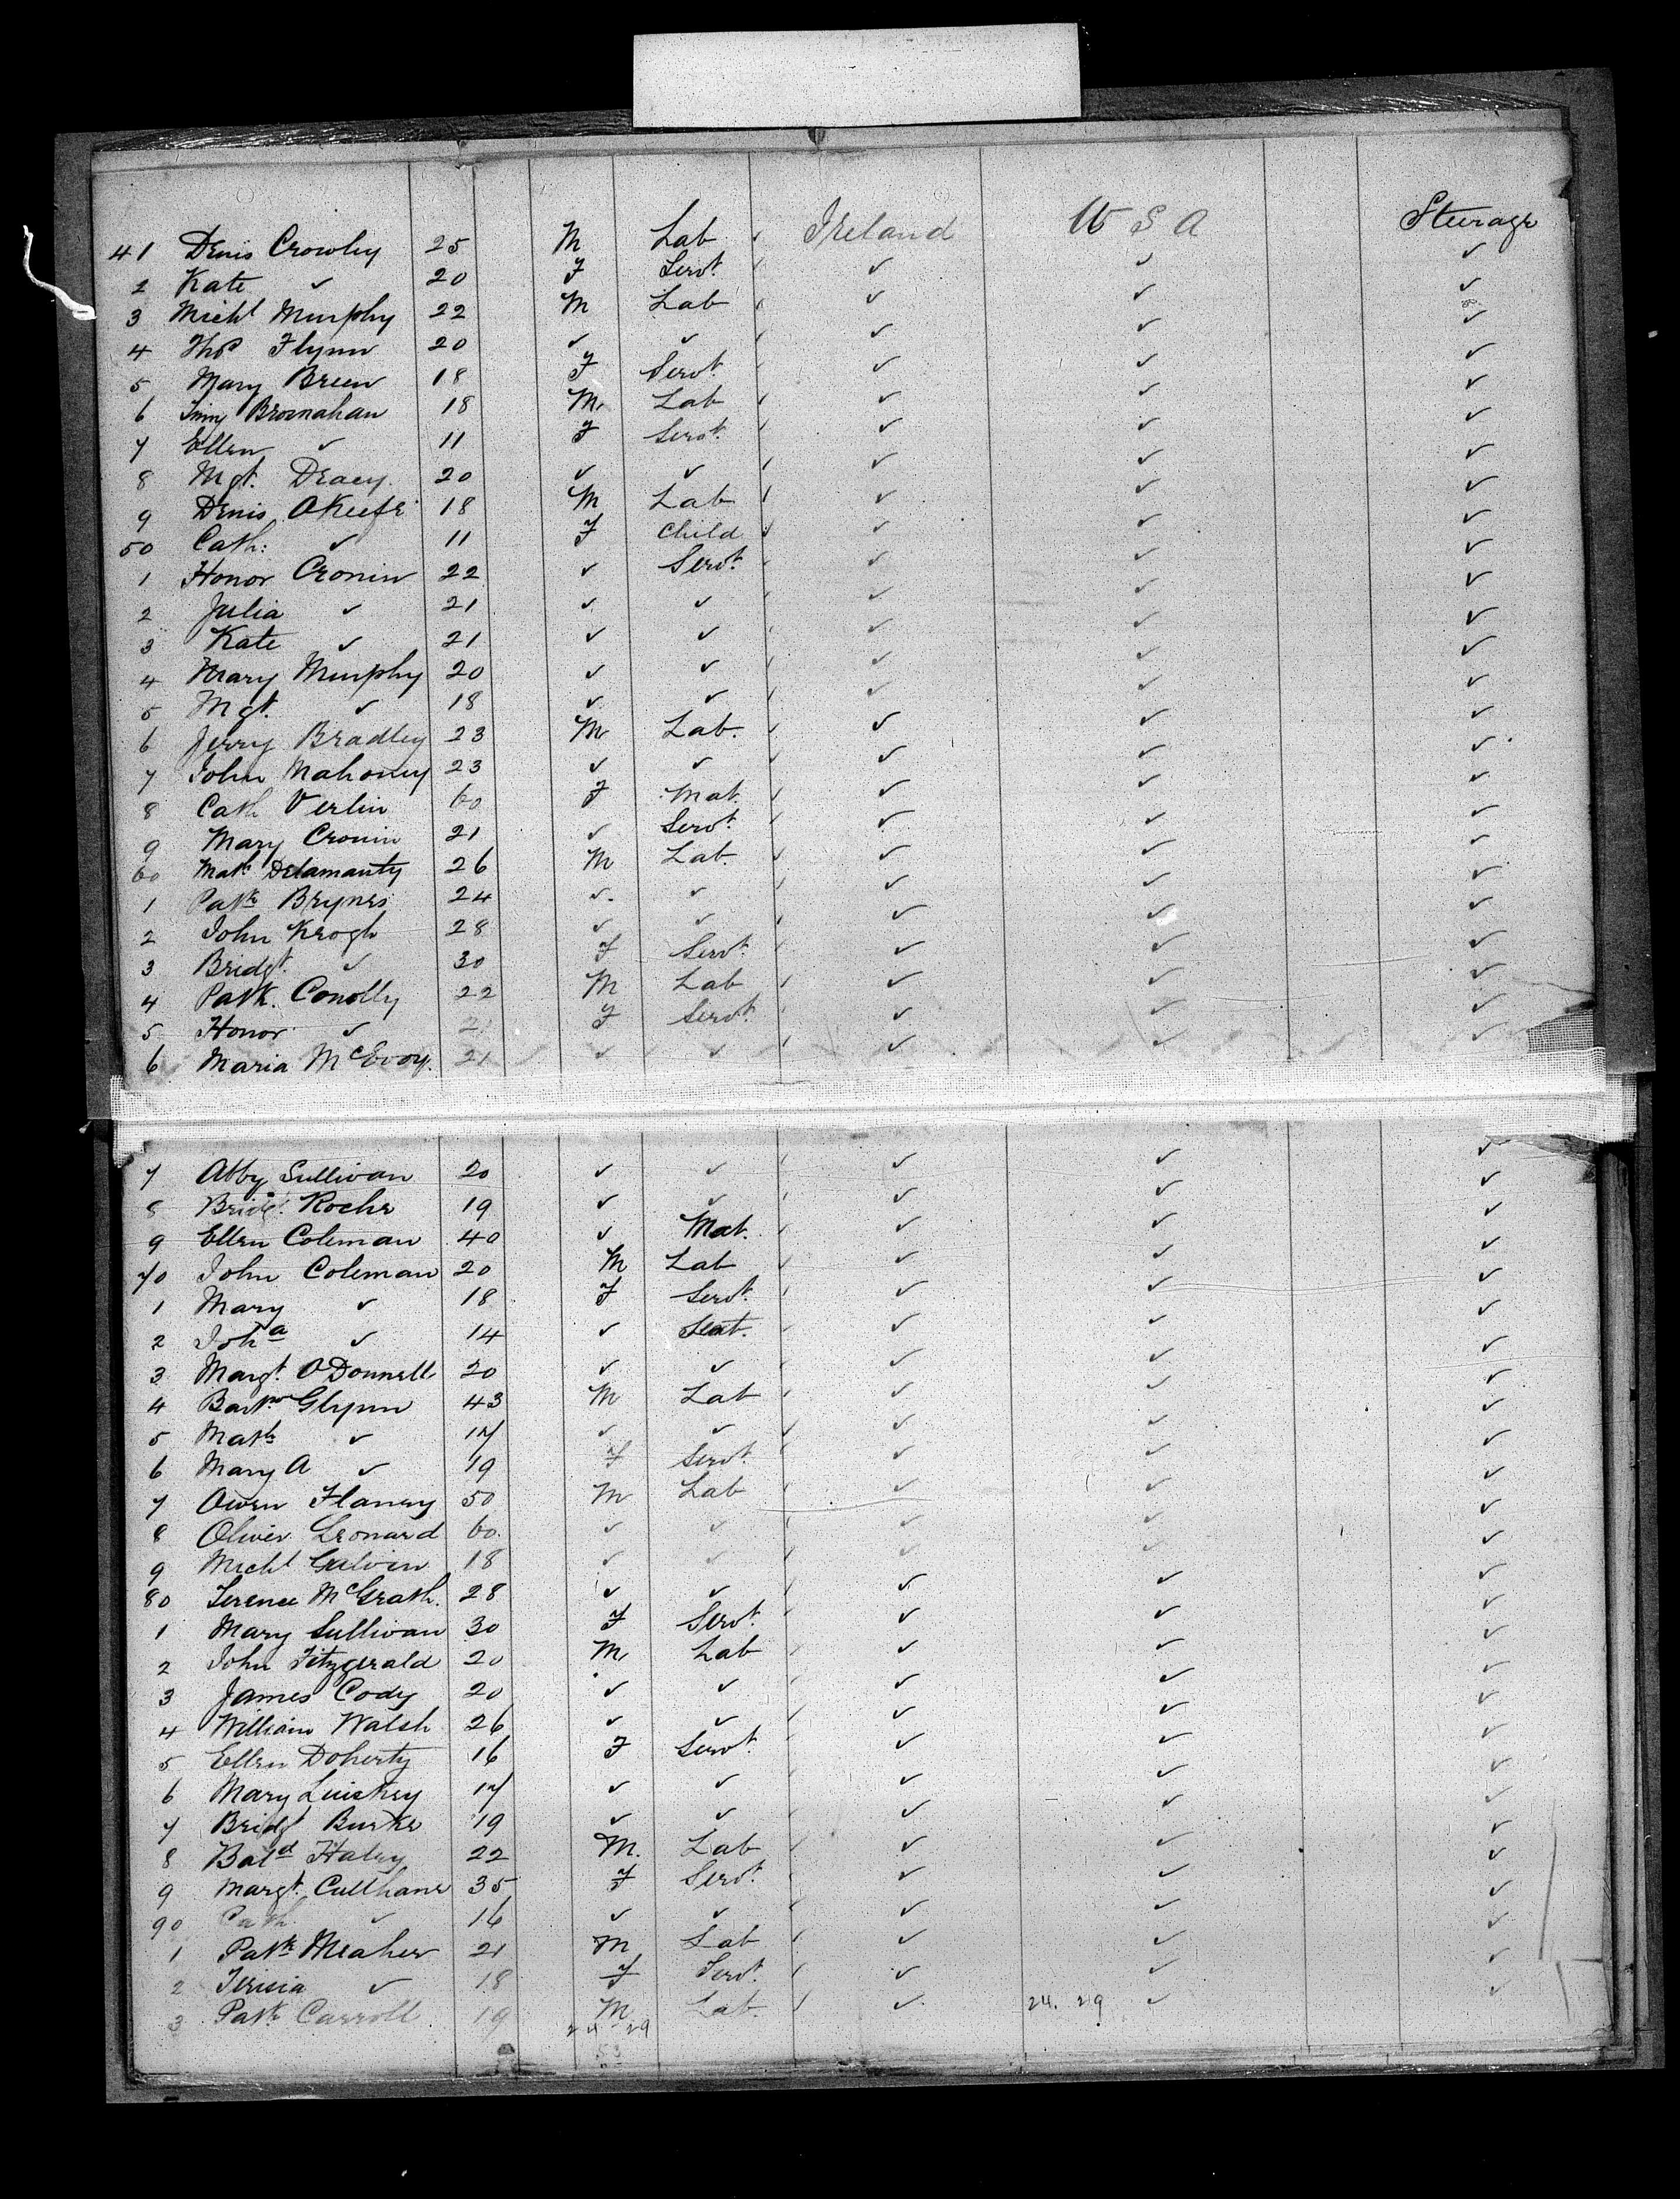 41 Denis Crowley 25 M Lab ✓ Ireland U S A Steerage
2 Kate ✓ 20 F Servt. ✓ ✓ ✓
3 Michl Murphy 22 M Lab ✓ ✓ ✓
4 Thos Flynn 20 ✓ ✓ ✓ ✓ ✓
5 Mary Breen 18 F Servt. ✓ ✓ ✓
6 Brosnahan 18 M Lab ✓ ✓ ✓
7 Ellen ✓ 11 F Servt. ✓ ✓ ✓
8 Mgt. Dracy 20 ✓ ✓ ✓ ✓ ✓
9 Denis OKeefe 18 M Lab ✓ ✓ ✓
50 Cath: ✓ 11 F Child ✓ ✓ ✓
1 Honor Cronin 22 ✓ Servt. ✓ ✓ ✓
2 Julia ✓ 21 ✓ ✓ ✓ ✓ ✓
3 Kate ✓ 21 ✓ ✓ ✓ ✓ ✓
4 Mary Murphy 20 ✓ ✓ ✓ ✓ ✓
5 Mgt. ✓ 18 ✓ ✓ ✓ ✓ ✓
6 Jerry Bradley 23 M Lab. ✓ ✓ ✓
7 John Mahoney 23 ✓ ✓ ✓ ✓ ✓
8 Cath Verlin 60 F Mat. ✓ ✓ ✓
9 Mary Cronin 21 ✓ Servt. ✓ ✓ ✓
60 Math Delamanty 26 M Lab. ✓ ✓ ✓
1 Patk Brynes 24 ✓ ✓ ✓ ✓ ✓
2 John Krogh 28 ✓ ✓ ✓ ✓ ✓
3 Bridgt. ✓ 30 F Servt. ✓ ✓ ✓
4 Patk. Conolly 22 M Lab ✓ ✓ ✓
5 Honor ✓ 21 F Servt. ✓ ✓ ✓
6 Maria McEvoy. 21 ✓ ✓ ✓ ✓ ✓
7 Abby Sullivan 20 ✓ ✓ ✓ ✓ ✓
8 Bridgt. Roche 19 ✓ ✓ ✓ ✓ ✓
9 Ellen Coleman 40 ✓ Mat. ✓ ✓ ✓
70 John Coleman 20 M Lab ✓ ✓ ✓
1 Mary ✓ 18 F Servt. ✓ ✓ ✓
2 Joha ✓ 14 ✓ ✓ ✓ ✓
3 Margt. ODonnell 20 ✓ ✓ ✓ ✓ ✓
4 Bartw Glynn 43 M Lab ✓ ✓ ✓
5 Math ✓ 17 ✓ ✓ ✓ ✓ ✓
6 Mary A ✓ 19 F Servt. ✓ ✓ ✓
7 Owen Flanery 50 M Lab ✓ ✓ ✓
8 Oliver Leonard 60. ✓ ✓ ✓ ✓ ✓
9 Michl Galvin 18 ✓ ✓ ✓ ✓ ✓
80 Terence McGrath. 28 ✓ ✓ ✓ ✓ ✓
1 Mary Sullivan 30 F Servt. ✓ ✓ ✓
2 John Fitzgerald 20 M Lab ✓ ✓ ✓
3 James Cody 20 ✓ ✓ ✓ ✓ ✓
4 William Walsh 26 ✓ ✓ ✓ ✓ ✓
5 Ellen Doherty 16 F Servt. ✓ ✓ ✓
6 Mary 17 ✓ ✓ ✓ ✓ ✓
7 Bridgt Burke 19 ✓ ✓ ✓ ✓ ✓
8 Batd Haley 22 M. Lab ✓ ✓ ✓
9 Margt. Culhane 35 F Servt. ✓ ✓ ✓
90 Cath ✓ 16 ✓ ✓ ✓ ✓ ✓
1 Patk Meaher 21 M Lab ✓ ✓ ✓
2 Teresia ✓ 18 F Servt. ✓ ✓ ✓
3 Patk Carroll 19 M Lab. ✓ 24. 29 ✓ ✓
24 29
53